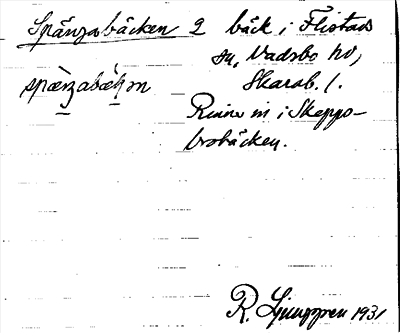 Spänzabäcken 2 bäck i Flistads
sn, Vadsbo hd,
Skarab. l.
spænzabækən
Rinner in i Skepps-
brobäcken.
R. Ljunggren 1931